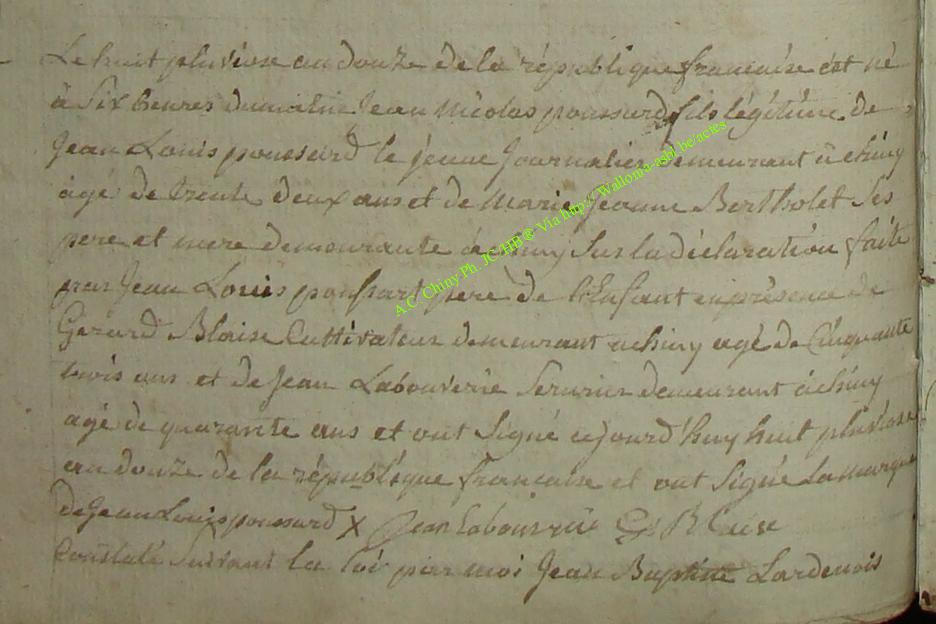 Le huit pluviose an douze de la république francaise est né
à Six heures du matin Jean Nicolas poussard fils légitime de
Jean Louis poussard le jeune Journalier demeurant à chiny
agé de trente deux ans et de Marie Jeanne Bertholet Ses
pere et mere demeurante à chiny Sur la déclaration faite
par Jean Louis poussart pere de l'Enfant en présence de
Gerard Blaise Cultivateur demeurant a chiny agé de Cinquante
trois ans et de Jean Labouverie Serurier demeurant à chiny
agé de quarante ans et ont Signé cejourd'huy huit pluviose
an douze de la république francaise et ont Signé La marque
de Jean Louis poussard X Jean Labouverie G Blaise
Constaté suivant la loi par moi Jean Baptiste Lardenois
A.C. Chiny Ph. JC HB © Via http://Wallonia-asbl.be/actes